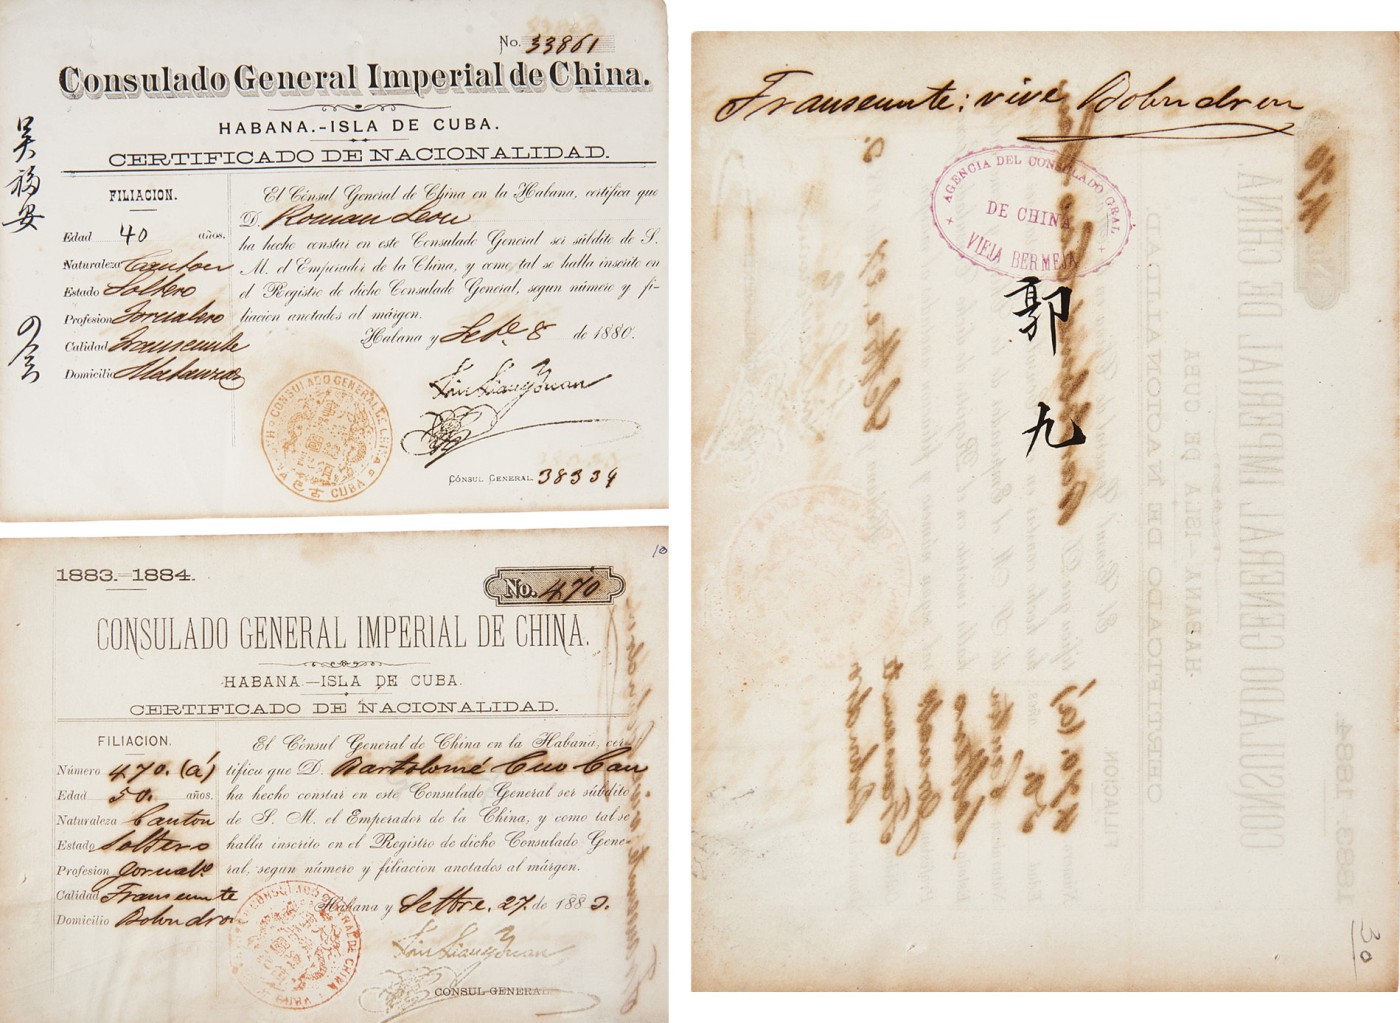 No. 33861
Consulado General Imperial de China.
HABANA.-ISLA DE CUBA.
CERTIFICADO DE NACIONALIDAD.
吴福安
FILIACION.
Edad 40 años.
Naturaleza Canton
Estado Soltero
Profesion Jornalero
Calidad Transeunte
Domicilio Matanzas
El Cónsul General de China en la Habana, certifica que
D. Roman Leon
ha hecho constar en este Consulado General ser súbdito de S.
M. el Emperador de la China, y como tal se halla inscrito en
el Registro de dicho Consulado General, segun número y fi-
liacion anotados al márgen.
Habana y Sete. 8 de 1880.
Lin Liang Yuan
CONSULADO GENERAL DE CHINA
HABANA CUBA
CÓNSUL GENERAL
38339
10
1883.-1884.
No. 470
CONSULADO GENERAL IMPERIAL DE CHINA.
HABANA.-ISLA DE CUBA.
CERTIFICADO DE NACIONALIDAD.
FILIACION.
Número 470. (a)
Edad 50. años.
Naturaleza Canton
Estado Soltero
Profesion Jornalo
Calidad Transeunte
Domicilio Bolondron
El Cónsul General de China en la Habana, cer-
tifica que D. Bartolomé Cuo Cau
ha hecho constar en este Consulado General ser súbdito
de S. M. el Emperador de la China, y como tal se
halla inscrito en el Registro de dicho Consulado Gene-
ral, segun número y filiacion anotados al márgen.
Habana y Settbre. 27 de 1883.
Lin Liang Yuan
CONSULADO GENERAL DE CHINA
CUBA
CONSUL GENERAL
Transeunte: vive Bolondron
AGENCIA DEL CONSULADO GRAL
DE CHINA
VIEJA BERMEJA
郭九
30